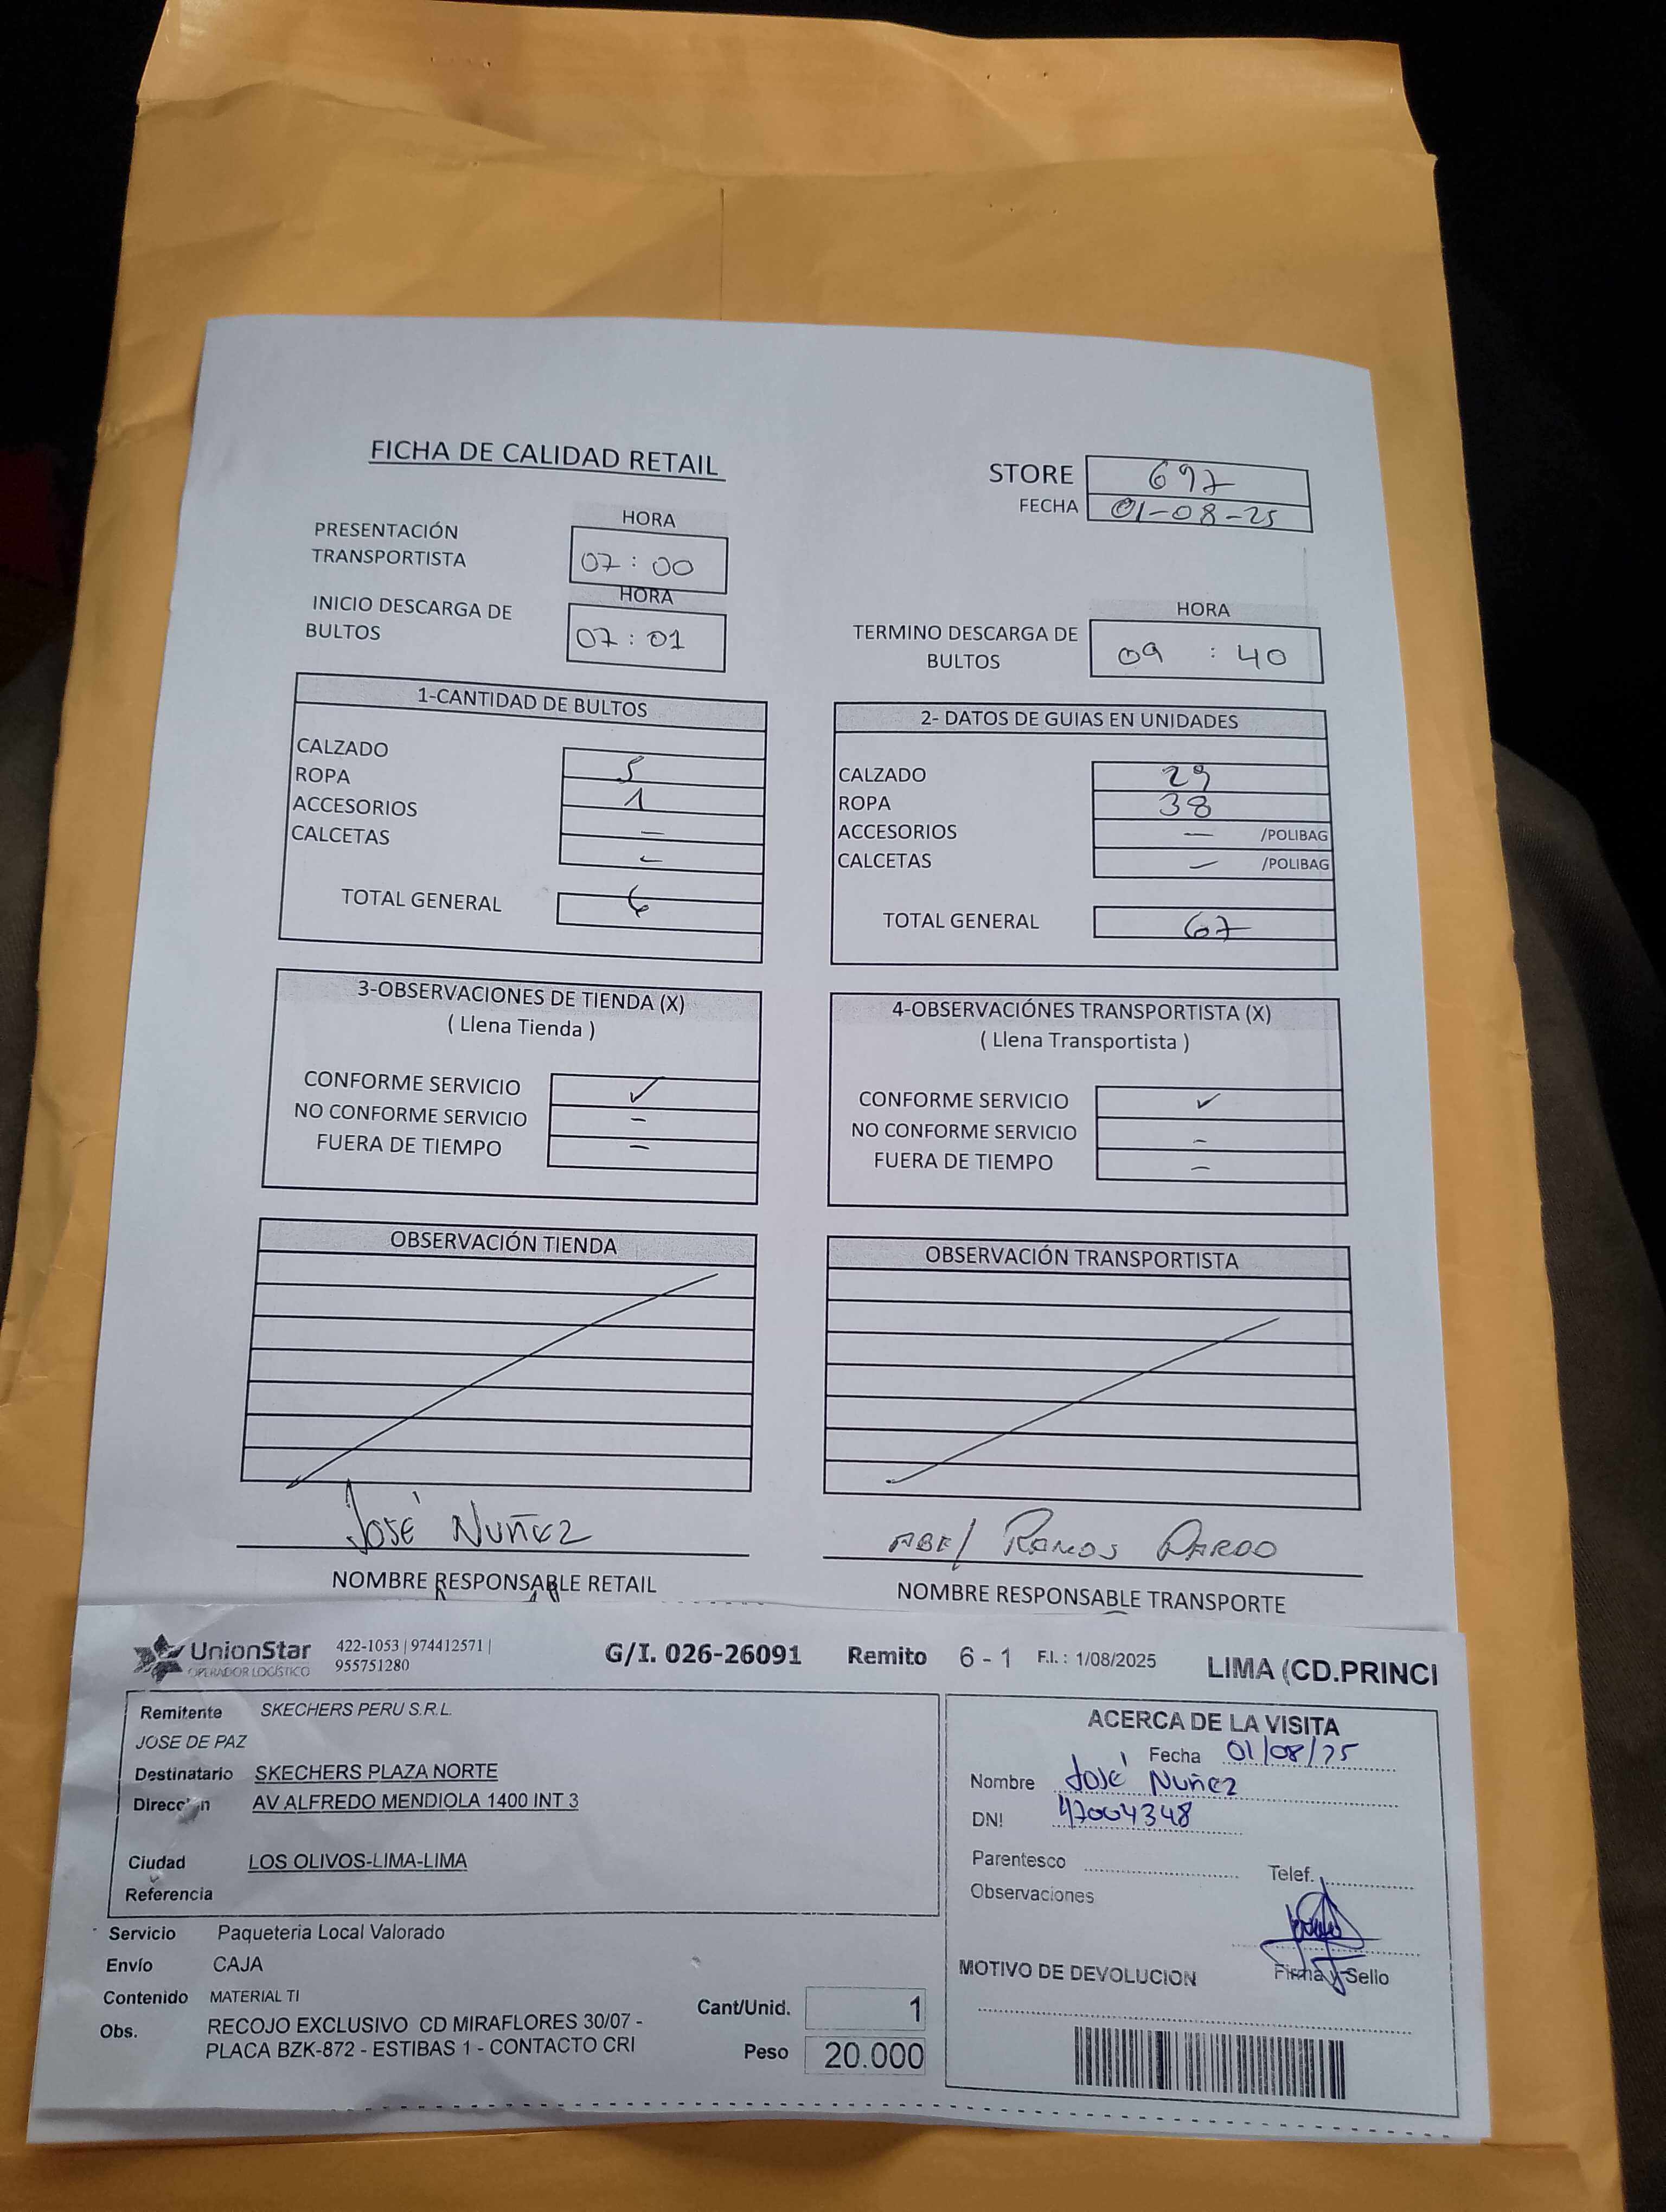 FICHA DE CALIDAD RETAIL
STORE 697
FECHA 01-08-25
HORA
PRESENTACIÓN TRANSPORTISTA 07 : 00
HORA
INICIO DESCARGA DE BULTOS 07 : 01
HORA
TERMINO DESCARGA DE BULTOS 09 : 40
1-CANTIDAD DE BULTOS
CALZADO 5
ROPA 1
ACCESORIOS —
CALCETAS -
TOTAL GENERAL 6
2- DATOS DE GUIAS EN UNIDADES
CALZADO 29
ROPA 38
ACCESORIOS — /POLIBAG
CALCETAS — /POLIBAG
TOTAL GENERAL 67
3-OBSERVACIONES DE TIENDA (X)
( Llena Tienda )
CONFORME SERVICIO ✓
NO CONFORME SERVICIO -
FUERA DE TIEMPO -
4-OBSERVACIÓNES TRANSPORTISTA (X)
( Llena Transportista )
CONFORME SERVICIO ✓
NO CONFORME SERVICIO -
FUERA DE TIEMPO -
OBSERVACIÓN TIENDA
OBSERVACIÓN TRANSPORTISTA
José Nuñez
NOMBRE RESPONSABLE RETAIL
ABEl RAMOS PARDO
NOMBRE RESPONSABLE TRANSPORTE
UnionStar
OPERADOR LOGÍSTICO
422-1053 | 974412571 |
955751280
G/I. 026-26091 Remito 6 - 1 F.I. : 1/08/2025 LIMA (CD.PRINCI
Remitente SKECHERS PERU S.R.L.
JOSE DE PAZ
Destinatario SKECHERS PLAZA NORTE
Dirección AV ALFREDO MENDIOLA 1400 INT 3
Ciudad LOS OLIVOS-LIMA-LIMA
Referencia
Servicio Paqueteria Local Valorado
Envío CAJA
Contenido MATERIAL TI
Obs. RECOJO EXCLUSIVO CD MIRAFLORES 30/07 -
PLACA BZK-872 - ESTIBAS 1 - CONTACTO CRI
Cant/Unid. 1
Peso 20.000
ACERCA DE LA VISITA
Fecha 01/08/25
Nombre José Nuñez
DNI 47004348
Parentesco
Telef.
Observaciones
Firma y Sello
MOTIVO DE DEVOLUCION